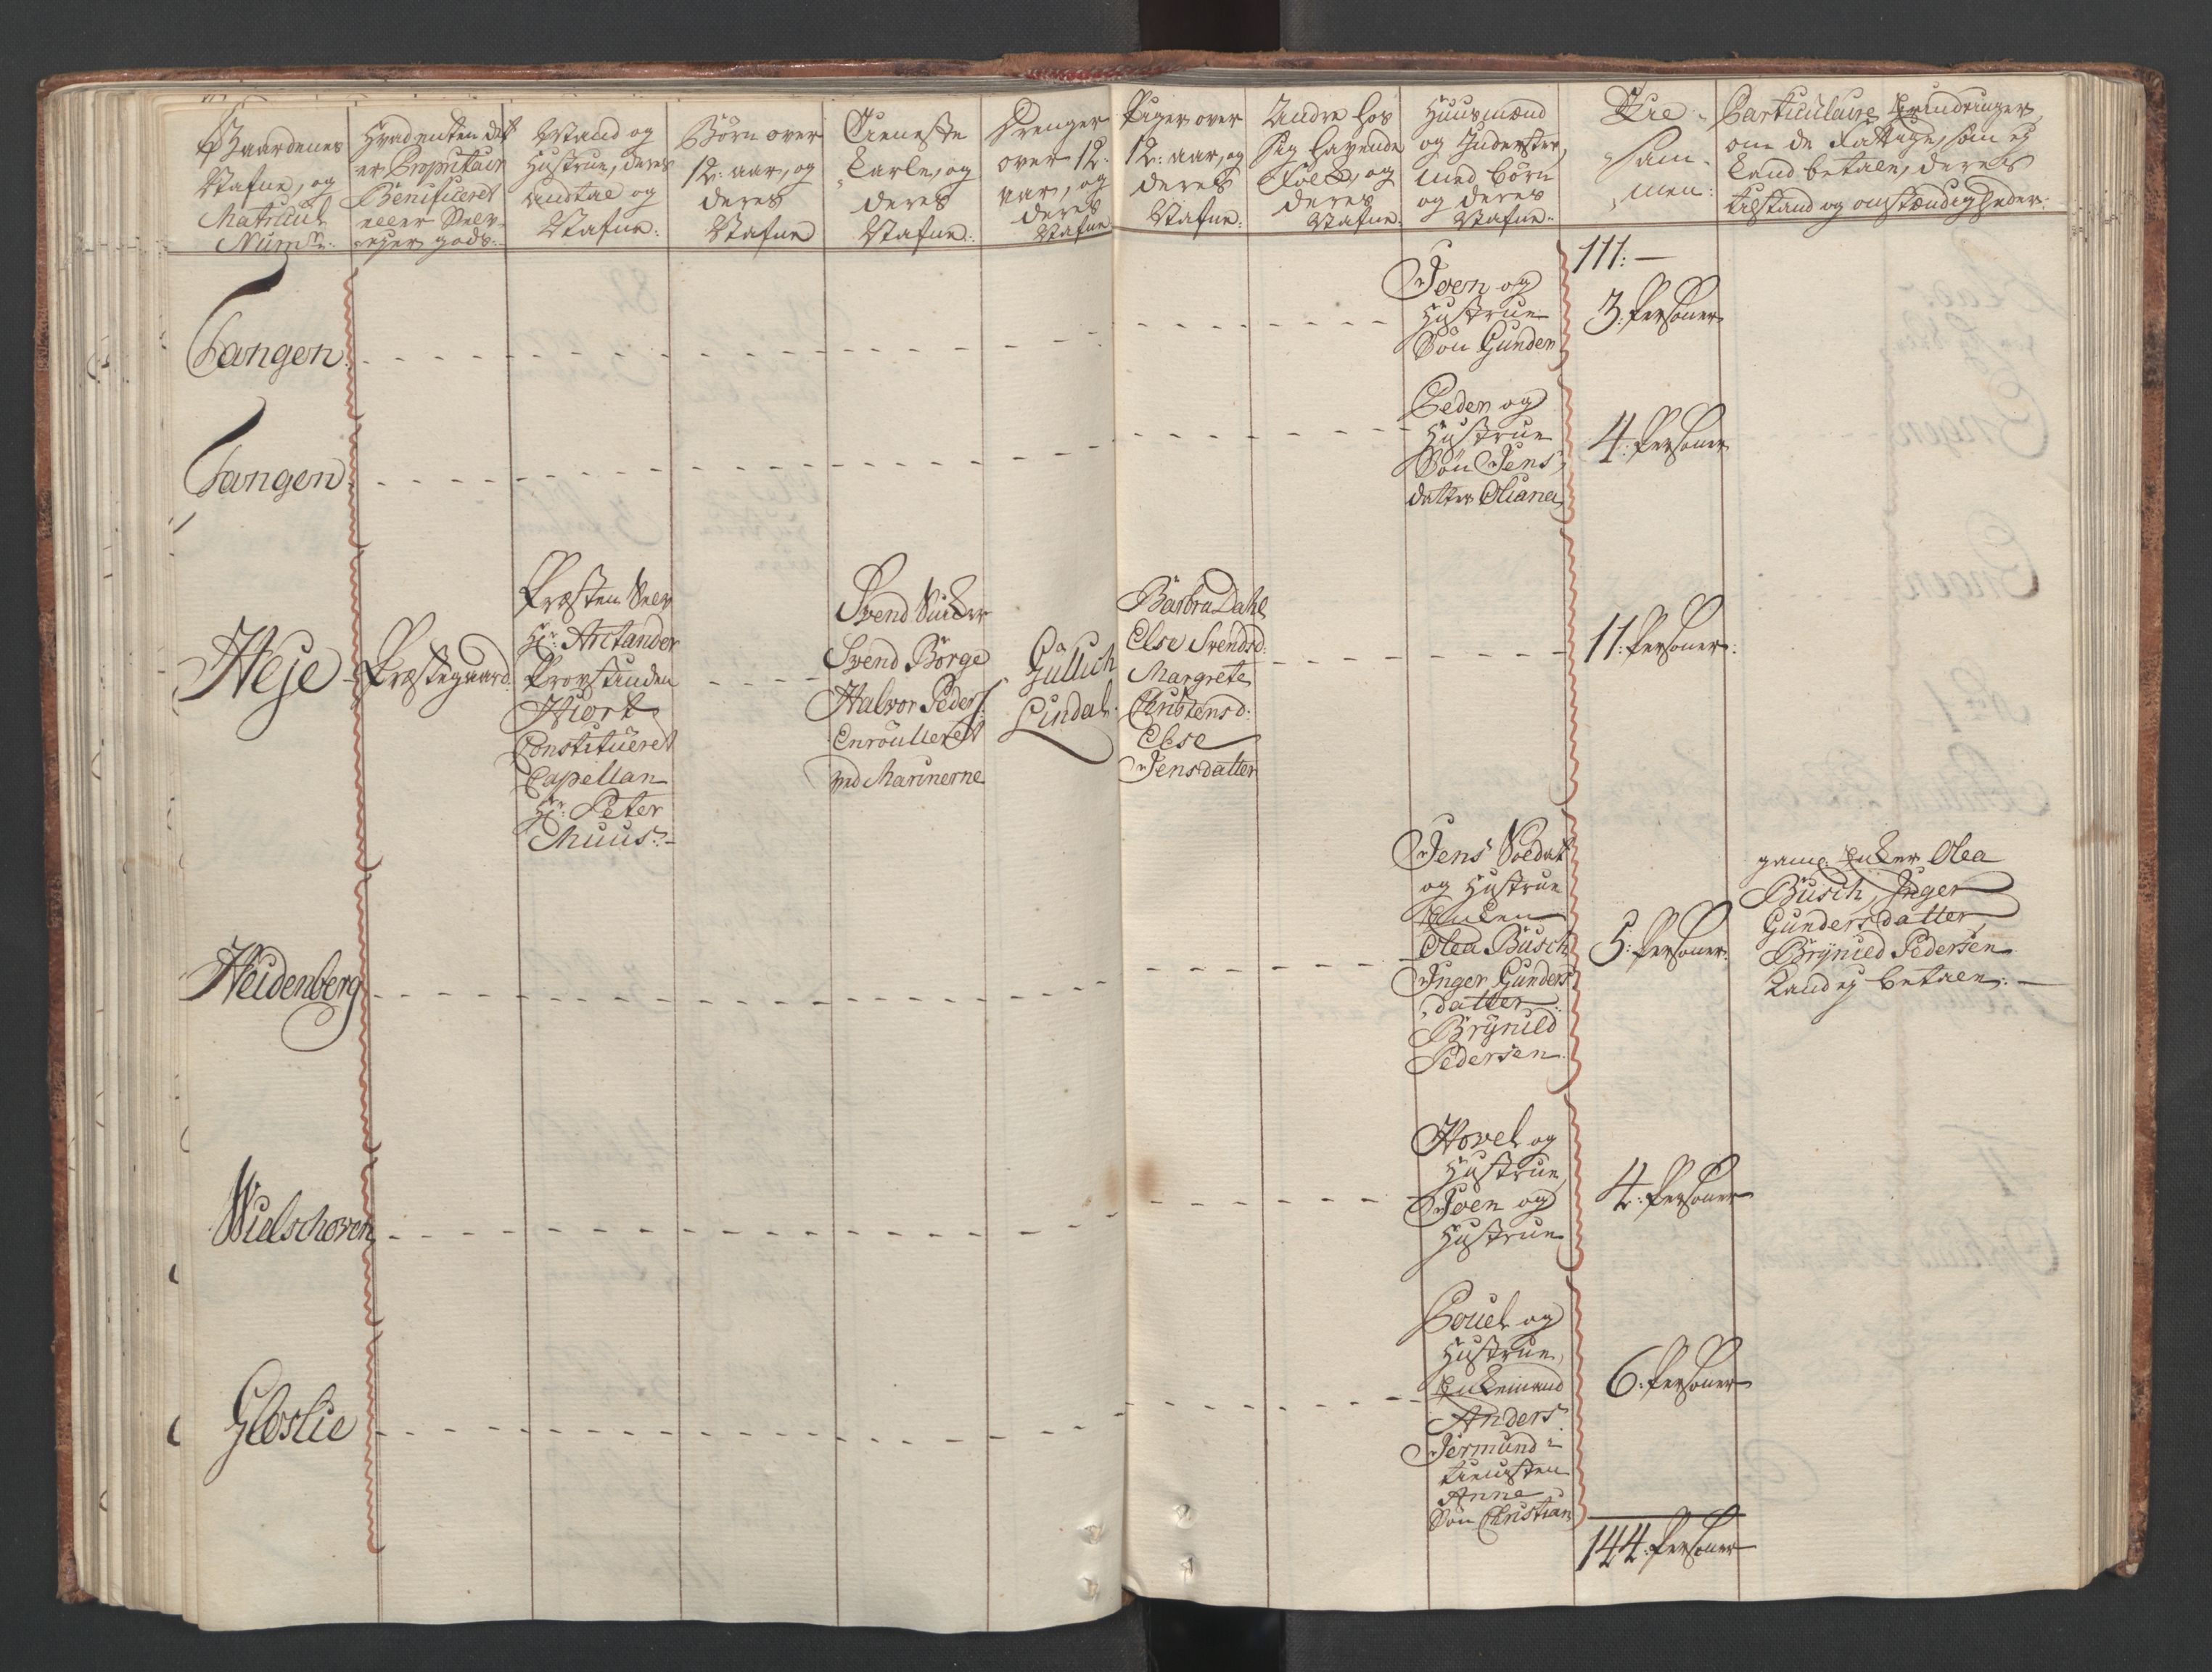 Gaardenes
Nafne, og
Matricul
Num:
Hvadenten det
er Proprietair
Benificeret
eller Selv-
ejer gods:
Mand og
Hustrue, deres
andtal og
Nafne:
Børn over
12: aar, og
deres
Nafne
Tieneste
Karle, og
deres
Nafne:
Drenger
over 12:
aar, og
deres
Nafne
Piger over
12: aar, og
deres
Nafne:
Andre hos
sig havende
Folck, og
deres
Nafne:
Huusmænd
og Inderster,
med børn
og deres
Nafne:
Til
sam-
men:
Particulaire Erindringer,
om de Fattige, som ej
kand betale, deres
tilstand og omstændigheder:
111:
Tangen
Joen og
Hustrue
Søn Gunder
3: Personer
Tangen
Peder og
Hustrue
Søn Jens,
datter Oliana
4: Personer
Heje
Præstegaard
Præsten Selv
Hr: Arctander
Provstinden
Hiort
Constitueret
Capellan
Hr: Peter
Muus:
Svend
Svend Børge
Halvor Peders:
Enroulleret
ved Marinerne
Gullich
Lindal
Barbra Dahl
Else Svendsd:
Margrete
Christensd:
Else
Jensdatter
11: Personer:
Heidenberg
Jens Soldat
og Hustrue
Enken
Olea Busch
Inger Gunders
datter
Brynild
Pedersen
5: Personer:
gaml: Enker Olea
Busch, Inger
Gundersdatter,
Brynild Pedersen
kand ej betale:
Wielschoven
Hovel og
Hustrue,
Joen og
Hustrue
4: Personer
Gloslie
Pouel og
Hustrue,
Enkemand
Anders
Jermund i
tienesten
Anne
Søn Christian
6: Personer
144: Personer